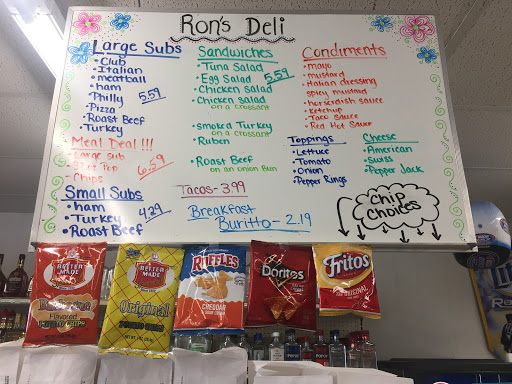 Ron's Deli
Large Subs
• Club
• Italian
• meatball
• ham
• Philly
• Pizza
• Roast Beef
• Turkey
5.59
Meal Deal !!!
- Large sub
- 32oz Pop
- Chips
6.59
Small Subs
• ham
• Turkey
• Roast Beef
4.29
Sandwiches
• Tuna Salad
• Egg Salad
• Chicken Salad
5.59
• Chicken salad
on a croissant
• smoked Turkey
on a croissant
• Ruben
• Roast Beef
on an onion Bun
Tacos - 3.99
Breakfast
Buritto - 2.19
Condiments
• mayo
• mustard
• Italian dressing
spicy mustard
• horserdish sauce
• ketchup
• Taco sauce
• Red Hot Sauce
Toppings
• Lettuce
• Tomato
• Onion
• Pepper Rings
Cheese
• American
• Swiss
• Pepper Jack
Chip
Choices
BETTER
MADE
Flavored
POTATO CHIPS
BETTER
MADE
Original
POTATO CHIPS
RUFFLES
CHEDDAR
Doritos
Fritos
ORIGINAL